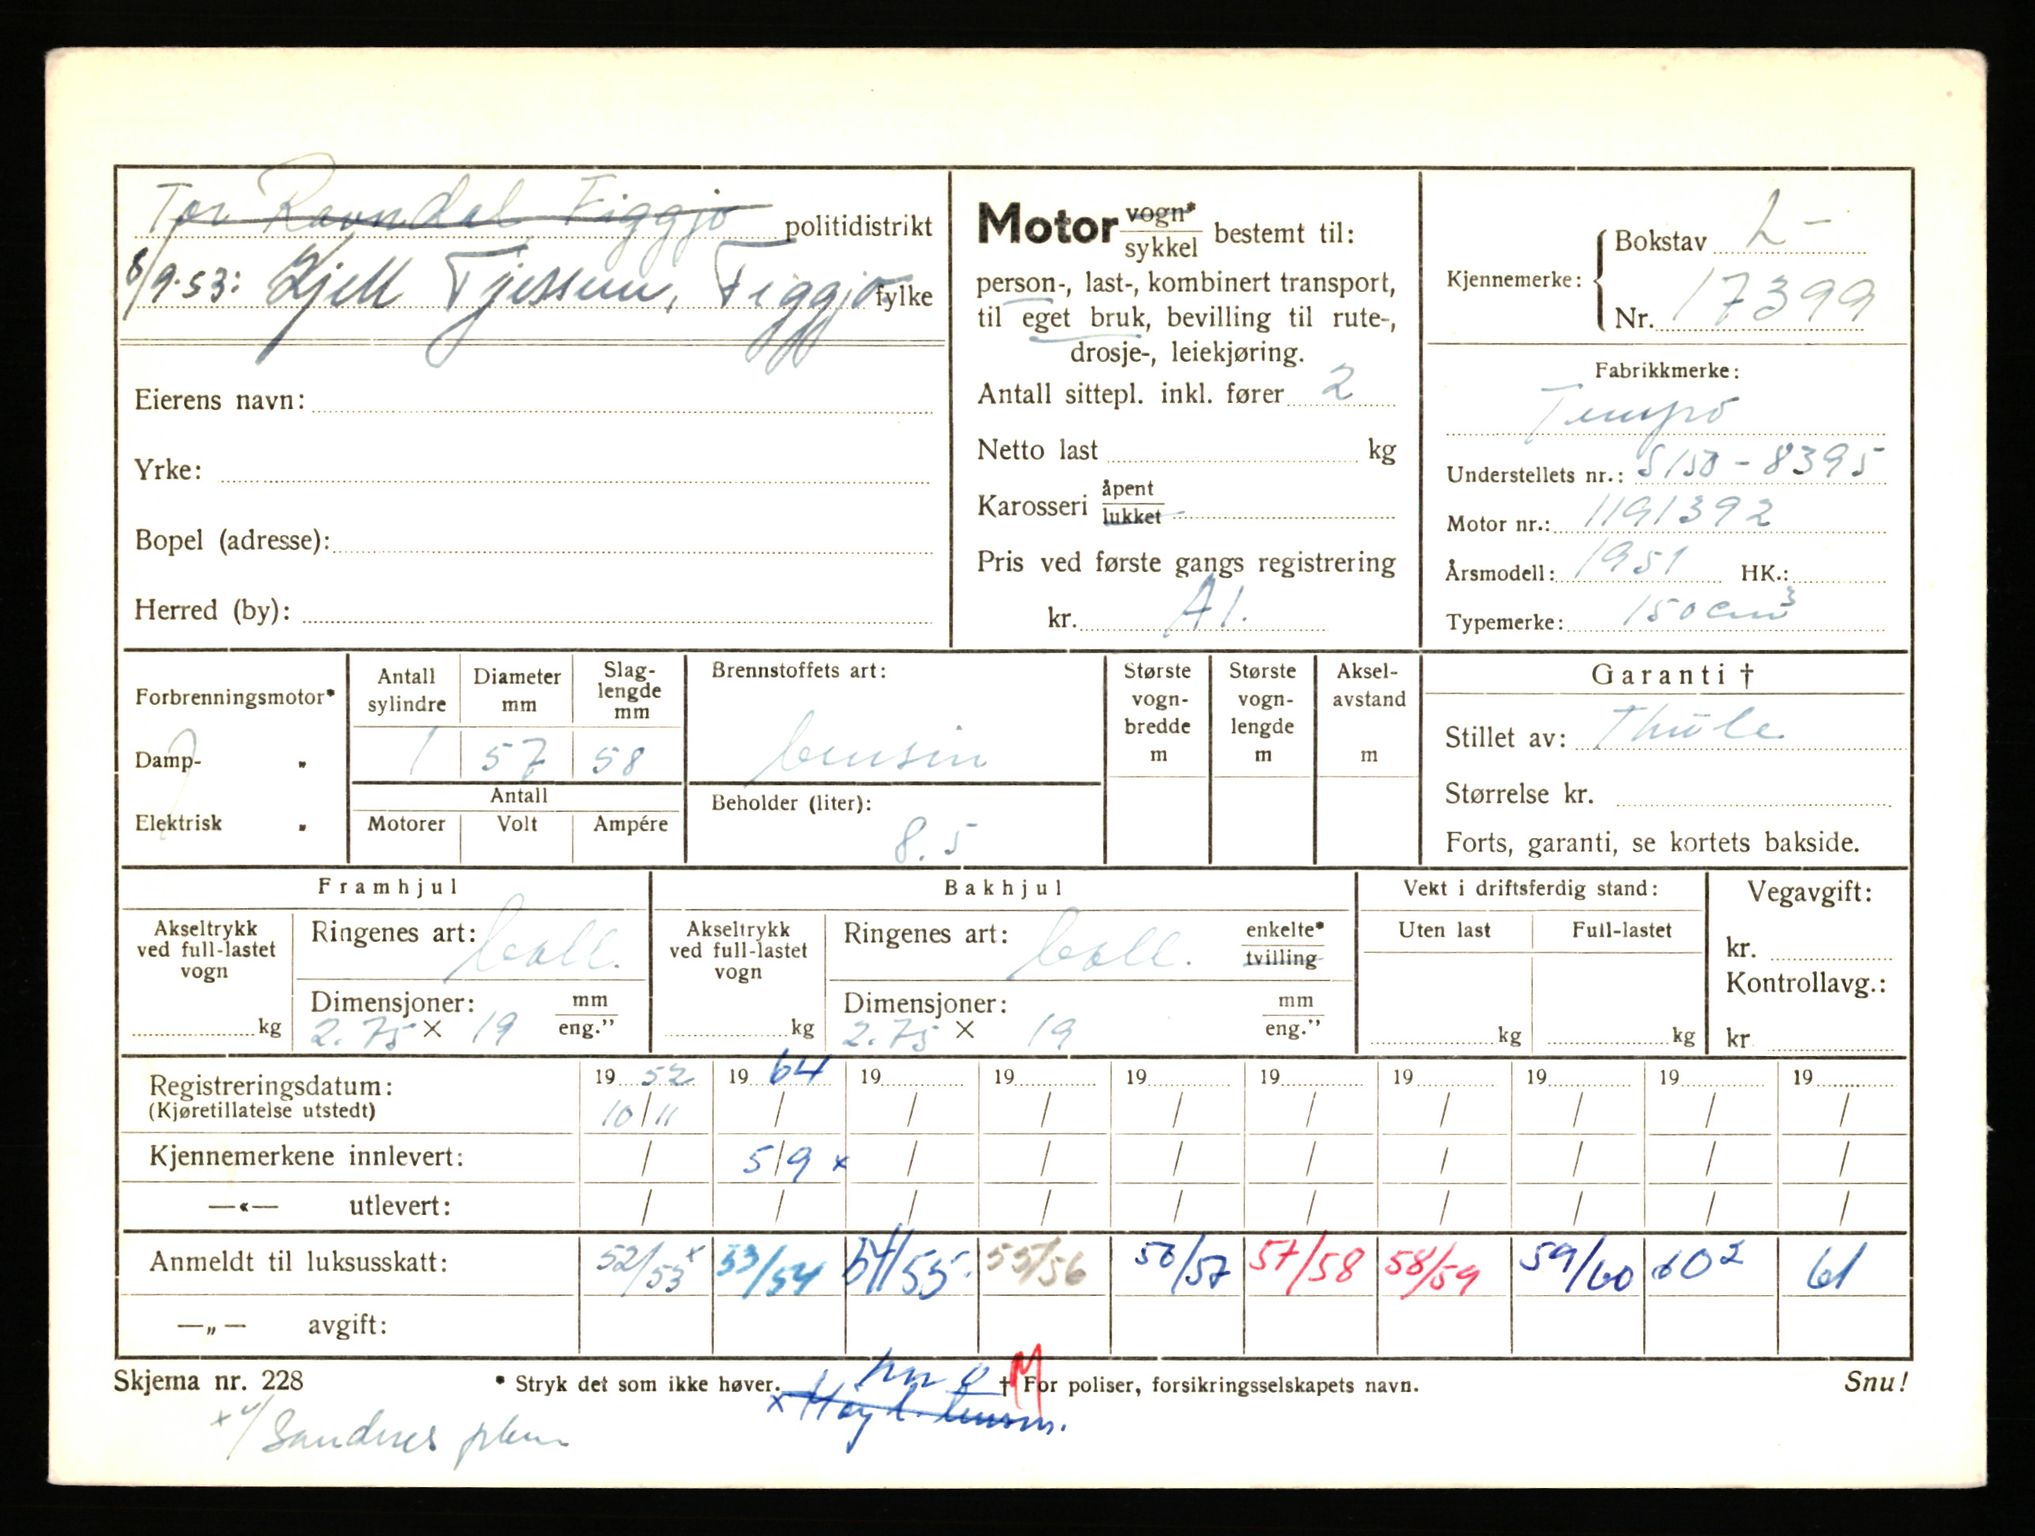 Tor Ravndal, Figgjo politidistrikt
8/9.53: Kjell Tjessem, Figgjo fylke
Eierens navn:
Yrke:
Bopel (adresse):
Herred (by):
Motor vogn* / sykkel bestemt til:
person-, last-, kombinert transport,
til eget bruk, bevilling til rute-,
drosje-, leiekjøring.
Antall sittepl. inkl. fører 2
Netto last kg
Karosseri åpent / lukket
Pris ved første gangs registrering
kr. A1.
Kjennemerke: Bokstav L-
Nr. 17399
Fabrikkmerke:
Tempo
Understellets nr.: S150-8395
Motor nr.: 1191392
Årsmodell: 1951 HK.:
Typemerke: 150 cm3
Forbrenningsmotor*
Damp- "
Elektrisk "
Antall sylindre 1
Diameter mm 57
Slag-lengde mm 58
Antall
Motorer Volt Ampére
Brennstoffets art:
bensin
Beholder (liter):
8.5
Største vogn-bredde m
Største vogn-lengde m
Aksel-avstand m
Garanti †
Stillet av: Thule
Størrelse kr.
Forts, garanti, se kortets bakside.
Framhjul
Akseltrykk ved full-lastet vogn kg
Ringenes art: ball.
Dimensjoner: mm / eng."
2.75 × 19
Bakhjul
Akseltrykk ved full-lastet vogn kg
Ringenes art: ball. enkelte* / tvilling
Dimensjoner: mm / eng."
2.75 × 19
Vekt i driftsferdig stand:
Uten last Full-lastet
kg kg
Vegavgift:
kr.
Kontrollavg.:
kr
Registreringsdatum: 19 52 19 64 19 19 19 19 19 19 19 19
(Kjøretillatelse utstedt) 10/11 / / / / / / / / /
Kjennemerkene innlevert: / 5/9 x / / / / / / / /
—«— utlevert: / / / / / / / / / /
Anmeldt til luksusskatt: 52/53 x 53/54 54/55. 55/56 56/57 57/58 58/59 59/60 60 2 61
—„— avgift:
Skjema nr. 228 * Stryk det som ikke høver. † For poliser, forsikringsselskapets navn. Snu!
M
x
x Sandnes